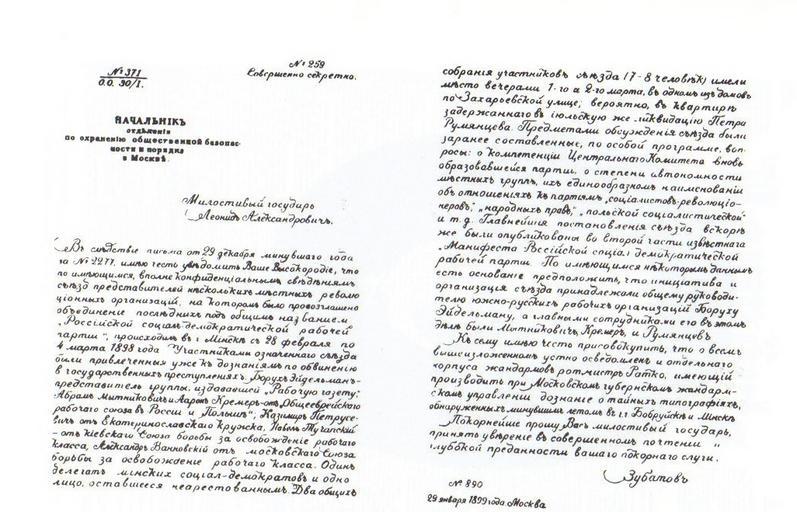 № 371
О.О. 30/1.
№ 259
Совершенно секретно.
НАЧАЛЬНІКЪ
отдѣленія
по охраненію общественной безопас-
ности и порядка
в Москвѣ.
Милостивый государь
Леонидъ Александровичъ.
Въ слѣдствіе письма от 29 декабря минувшего года
за № 2277, имѣю честь увѣдомить Ваше Высокородіе, что
по имѣющимся, вполне конфиденціальным свѣдѣніямъ
съѣзд представителей нѣскольких мѣстных револю
ціонных организацій, на котором было провозглашено
объединение последних под общим названием
„Россійской соціал-демократической рабочей
партіи", происходилъ в г. Минскѣ с 28 февраля по
4 марта 1898 года. Участниками означеннаго съѣзда
были привлеченныя уже к дознаніям по обвиненію
в государственных преступленіях Борухъ Эйдельманъ-
представитель группы, издавшей „Рабочую газету;
Абрамъ Мытниковичъ и Ааронъ Кремеръ-от „Общееврейскаго
рабочаго союза в Россіи и Польшѣ", Казимиръ Петрусе-
вичъ от Екатеринославскаго кружка, Павелъ Тучапскій
- отъ кіевскаго Союза борьбы за освобожденіе рабочаго
класса, Александръ Ванновскій от московскаго Союза
борьбы за освобождение рабочаго класса. Одинъ
делегатъ минских социал-демократов и одно
лицо, оставшееся неарестованнымъ. Два общих
собранія участниковъ съѣзда (7-8 человѣк) имѣли
мѣсто вечерами 1-го и 2-го марта, въ одном из домов
по Захарьевской улице; вероятно, въ квартирѣ
задержаннаго в іюльскую же ликвидацію Петра
Румянцева. Предметами обсужденія съѣзда были
заранее составленные, по особой программе, воп-
росы: о компетенціи Центральнаго Комитета вновь
образовавшейся партіи, о степени автономности
мѣстных группъ, их единообразном наименованіи
об отношеніях къ партіямъ „соціалистов-революціо-
неровъ", „народных правъ", „польской социалистической"
и т.д. Главнѣйшія постановленія съѣзда вскорѣ
же были опубликованы во второй части извѣстнаго
„Манифеста Россійской соціал-демократической
рабочей партіи. По имѣющимся нѣкоторым данным
есть основание предположить, что инициатива и
организація съѣзда принадлежали общему руководи-
телю южно-русских рабочих организацій Боруху
Эйдельману, а главными сотрудниками его въ этом
дѣлѣ были Мытниковичъ, Кремеръ, и Румянцевъ
Къ сему имѣю честь присовокупить, что о всем
вышеизложенном устно осведомлен и отдѣльнаго
корпуса жандармовъ ротмистръ Ратко, имеющий
производить при Московскомъ губернскомъ жандарм-
ском управлении дознание о тайных типографіях,
обнаруженных минувшим летом в гг. Бобруйскѣ и Минскѣ
Покорнейше прошу Васъ милостивый государь,
принять увѣрение въ совершенном почтении и
глубокой преданности вашаго покорнаго слуги.
Зубатовъ
№ 890
29 января 1899 года. Москва